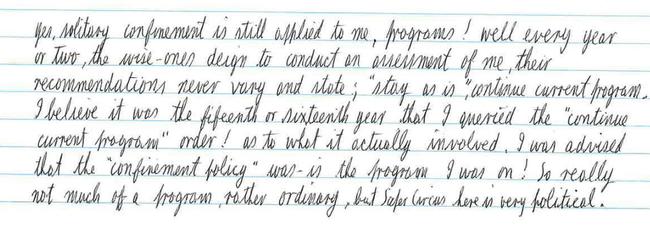 yes, solitary confinement is still applied to me, programs! well every year
or two, the wise-ones deign to conduct an assessment of me, their
recommendations never vary and state; "stay as is", "continue current program.
I believe it was the fifeenth or sixteenth year that I queried the "continue
current program" order! as to what it actually involved. I was advised
that the "confinement policy" was-is the program I was on! So really
not much of a program, rather ordinary, but Super Circus here is very political.